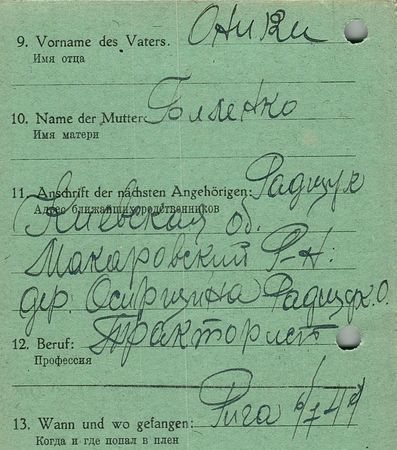 9. Vorname des Vaters. Оники
Имя отца
10. Name der Mutter: Бленко
Имя матери
11. Anschrift der nächsten Angehörigen: Радщук
Адрес ближайших родственников
Киевская об.
Макаровский Р-Н.
дер. Радщук О.
12. Beruf: Тракторист
Профессия
13. Wann und wo gefangen: Рига
Когда и где попал в плен